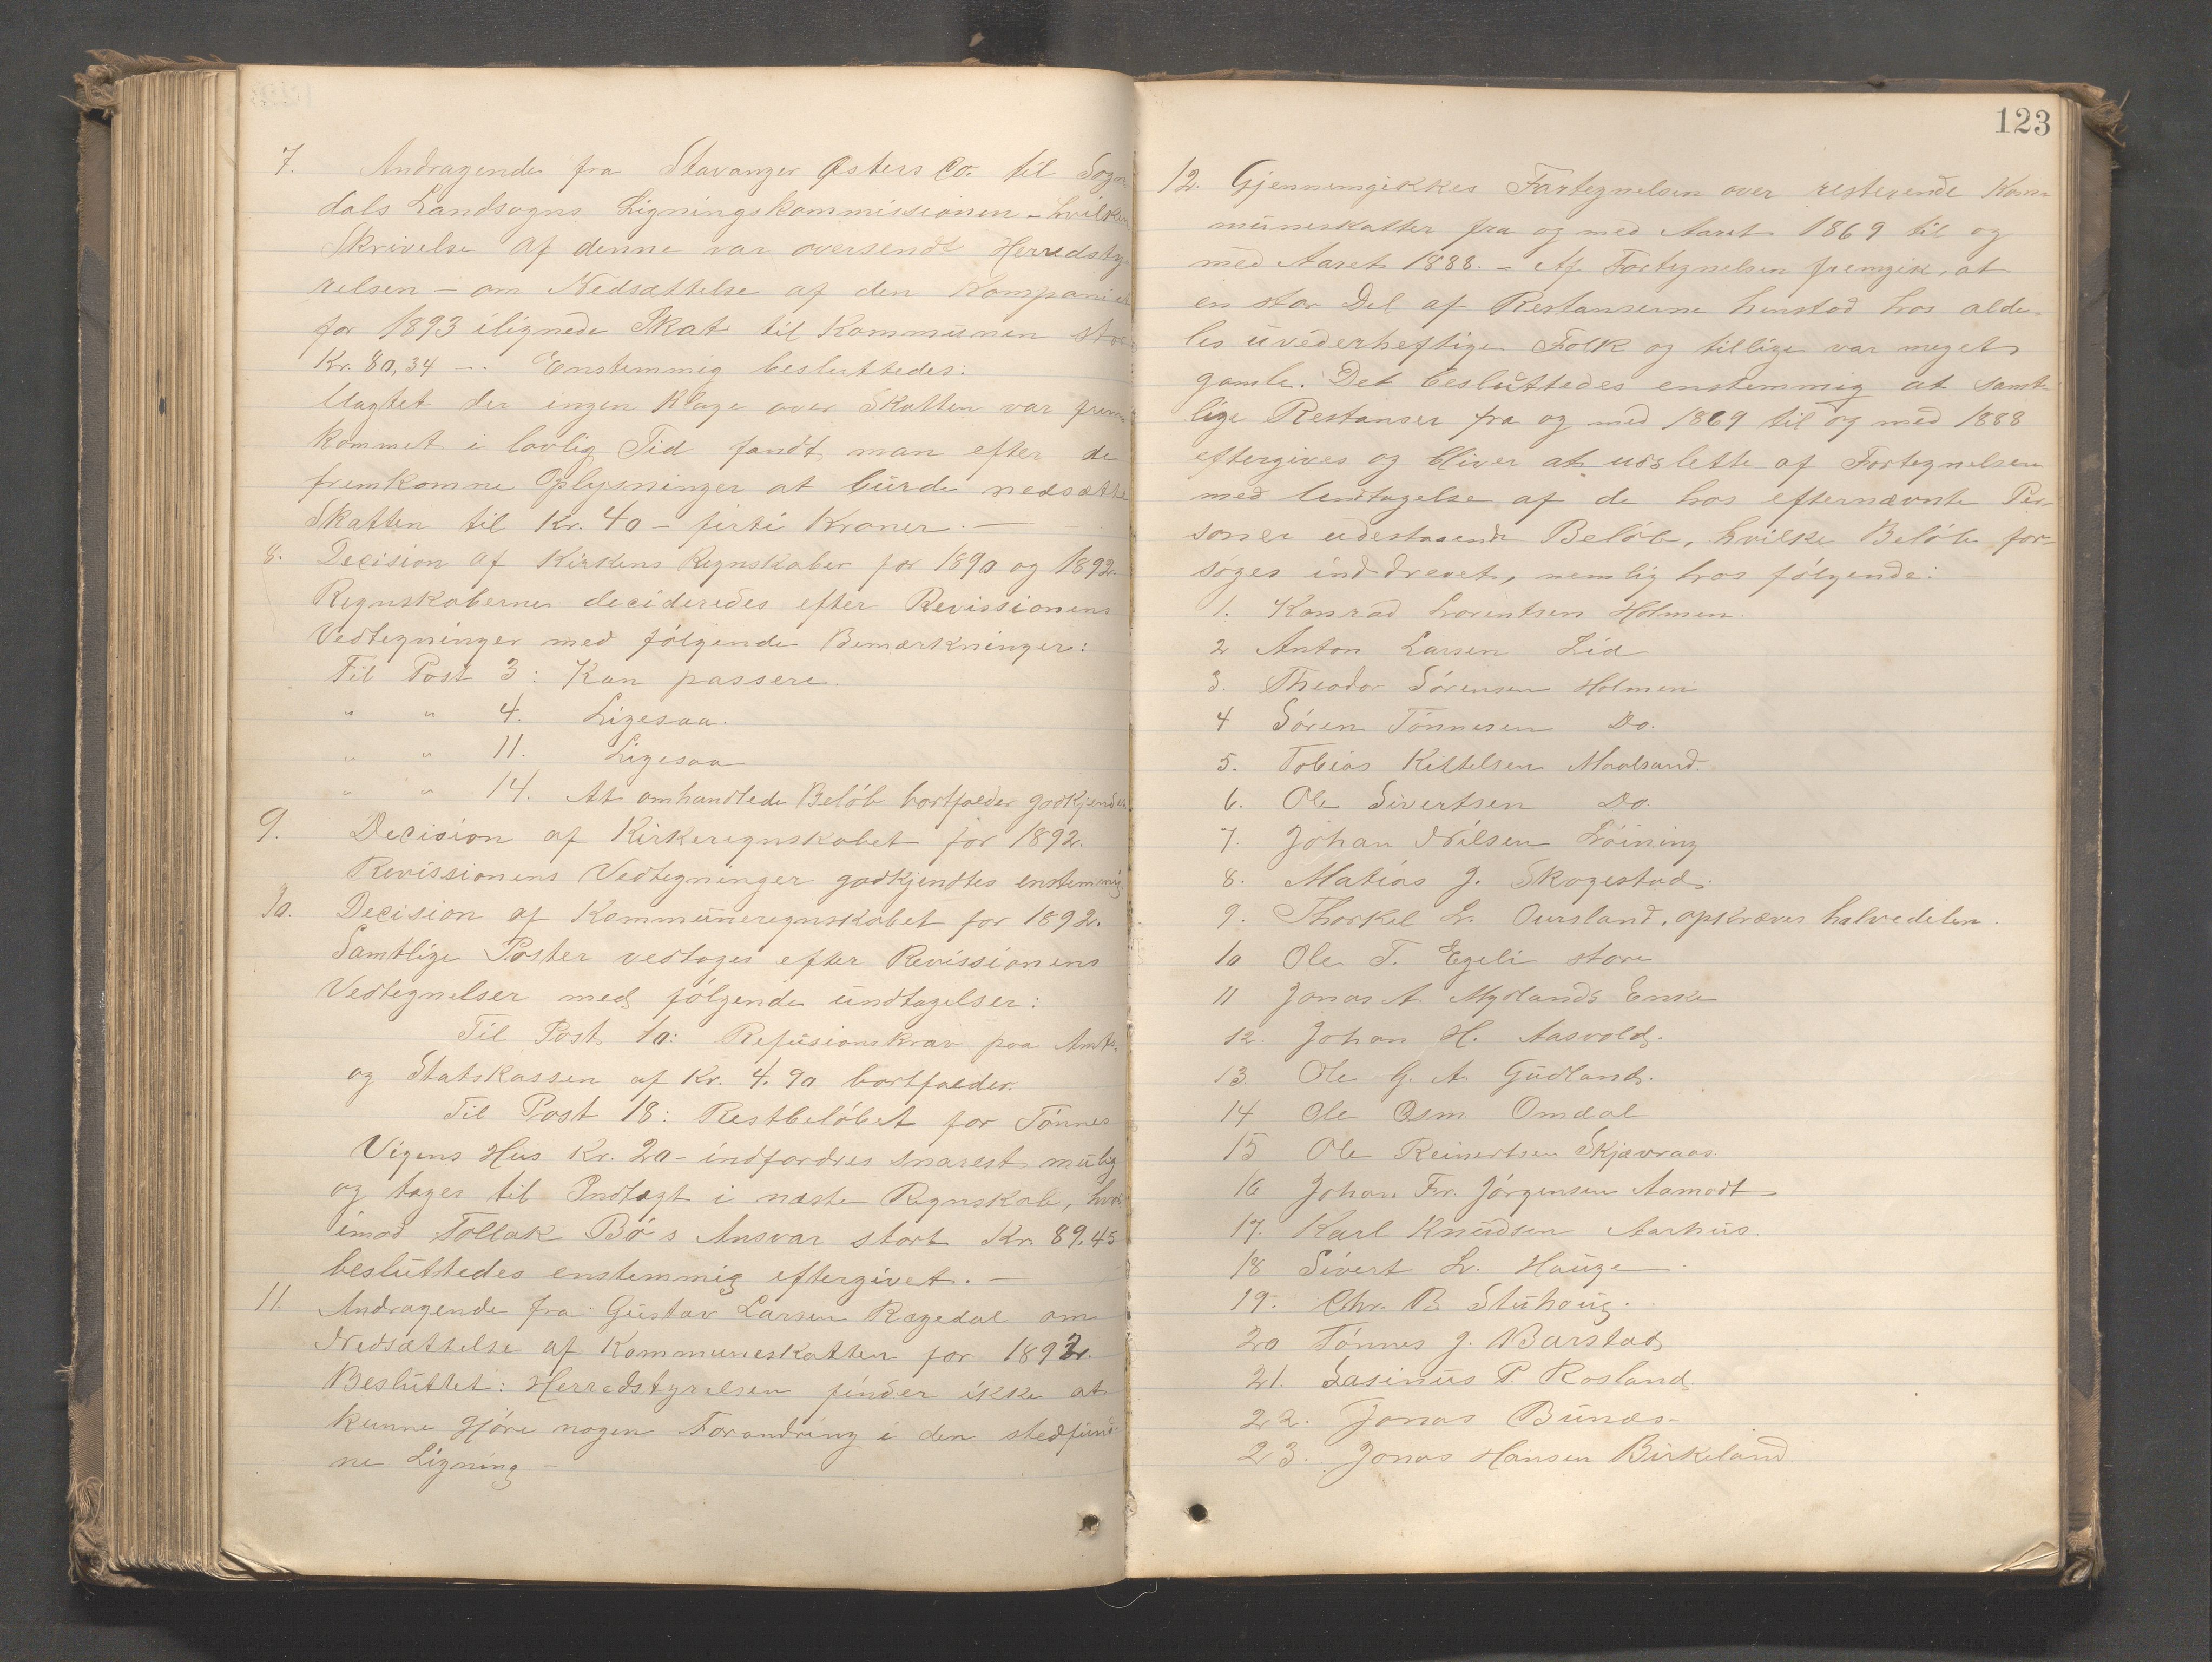 7. Andragende fra Stavanger Østers Co. til Sogn-
dals Landsogns Ligningskommissionen - hvilken
Skrivelse af denne var oversendt Herredsty-
relsen - om Nedsættelse af den Kompaniet
for 1893 ilignede Skat til Kommunen stor
Kr. 80,34 -. Enstemmig besluttedes:
Uagtet der ingen Klage over Skatten var frem-
kommet i lovlig Tid fandt man efter de
fremkomne Oplysninger at burde nedsætte
Skatten til Kr. 40 - firti Kroner. -
8. Decision af Kirkens Regnskaber for 1890 og 1892.
Regnskaberne decideredes efter Revissionens
Vedtegninger med følgende Bemærkninger:
Til Post 3: Kan passere.
" " 4. Ligesaa.
" " 11. Ligesaa
" " 14. At omhandlede Beløb bortfalder godkjendes
9. Decision af Kirkeregnskabet for 1892.
Revissionens Vedtegninger godkjendtes enstemmig
10. Decision af Kommuneregnskabet for 1892.
Samtlige Poster vedtoges efter Revissionens
Vedtegnelser med følgende undtagelser:
Til Post 10: Refusionskrav paa Amts-
og Statskassen af Kr. 4.90 bortfalder.
Til Post 18: Restbeløbet for Tønnes
Vigens Hus Kr. 20 - indfordres snarest mulig
og tages til Indtægt i næste Regnskab, hvor-
imod Tollak Bø's Ansvar stort Kr. 89.45
besluttedes enstemmig eftergivet. -
11. Andragende fra Gustav Larsen Rægedal om
Nedsættelse af Kommuneskatten for 1892.
Besluttet: Herredstyrelsen finder ikke at
kunne gjøre nogen Forandring i den stedfund-
ne Ligning -
123
12. Gjennemgikkes Fortegnelsen over resterende Kom-
muneskatter fra og med Aaret 1869 til og
med Aaret 1888. - Af Fortegnelsen fremgik, at
en stor Del af Restanserne henstod hos alde-
les uvederheftige Folk og tillige var meget
gamle. Det besluttedes enstemmig at samt-
lige Restanser fra og med 1869 til og med 1888
eftergives og bliver at udslette af Fortegnelsen
med Undtagelse af de hos efternævnte Per-
soner udestaaende Beløb, hvilke Beløb for-
søges inddrevet, nemlig hos følgende:
1. Konrad Lorentsen Holmen.
2 Anton Larsen Lid
3. Theodor Sørensen Holmen
4 Søren Tønnesen Do.
5. Tobias Kittelsen Moolsand.
6. Ole Sivertsen Do.
7. Johan Nilsen Løining
8. Matias J. Skogestad.
9. Thorkel L. Oursland, opkræves halvedelen.
10 Ole T. Egeli store
11 Jonas A. Mydlands Enke
12. Johan H. Aasvold.
13. Ole G. A. Gudland.
14 Ole Osm. Omdal
15 Ole Reinertsen Skjævraas.
16 Johan Fr. Jørgensen Aamodt
17. Karl Knudsen Aarhus.
18 Sivert L. Hauge.
19. Chr. B. Stuhaug.
20 Tønnes J. Barstad
21. Rasinus P. Rosland
22. Jonas Bunæs-
23. Jonas Hansen Birkeland